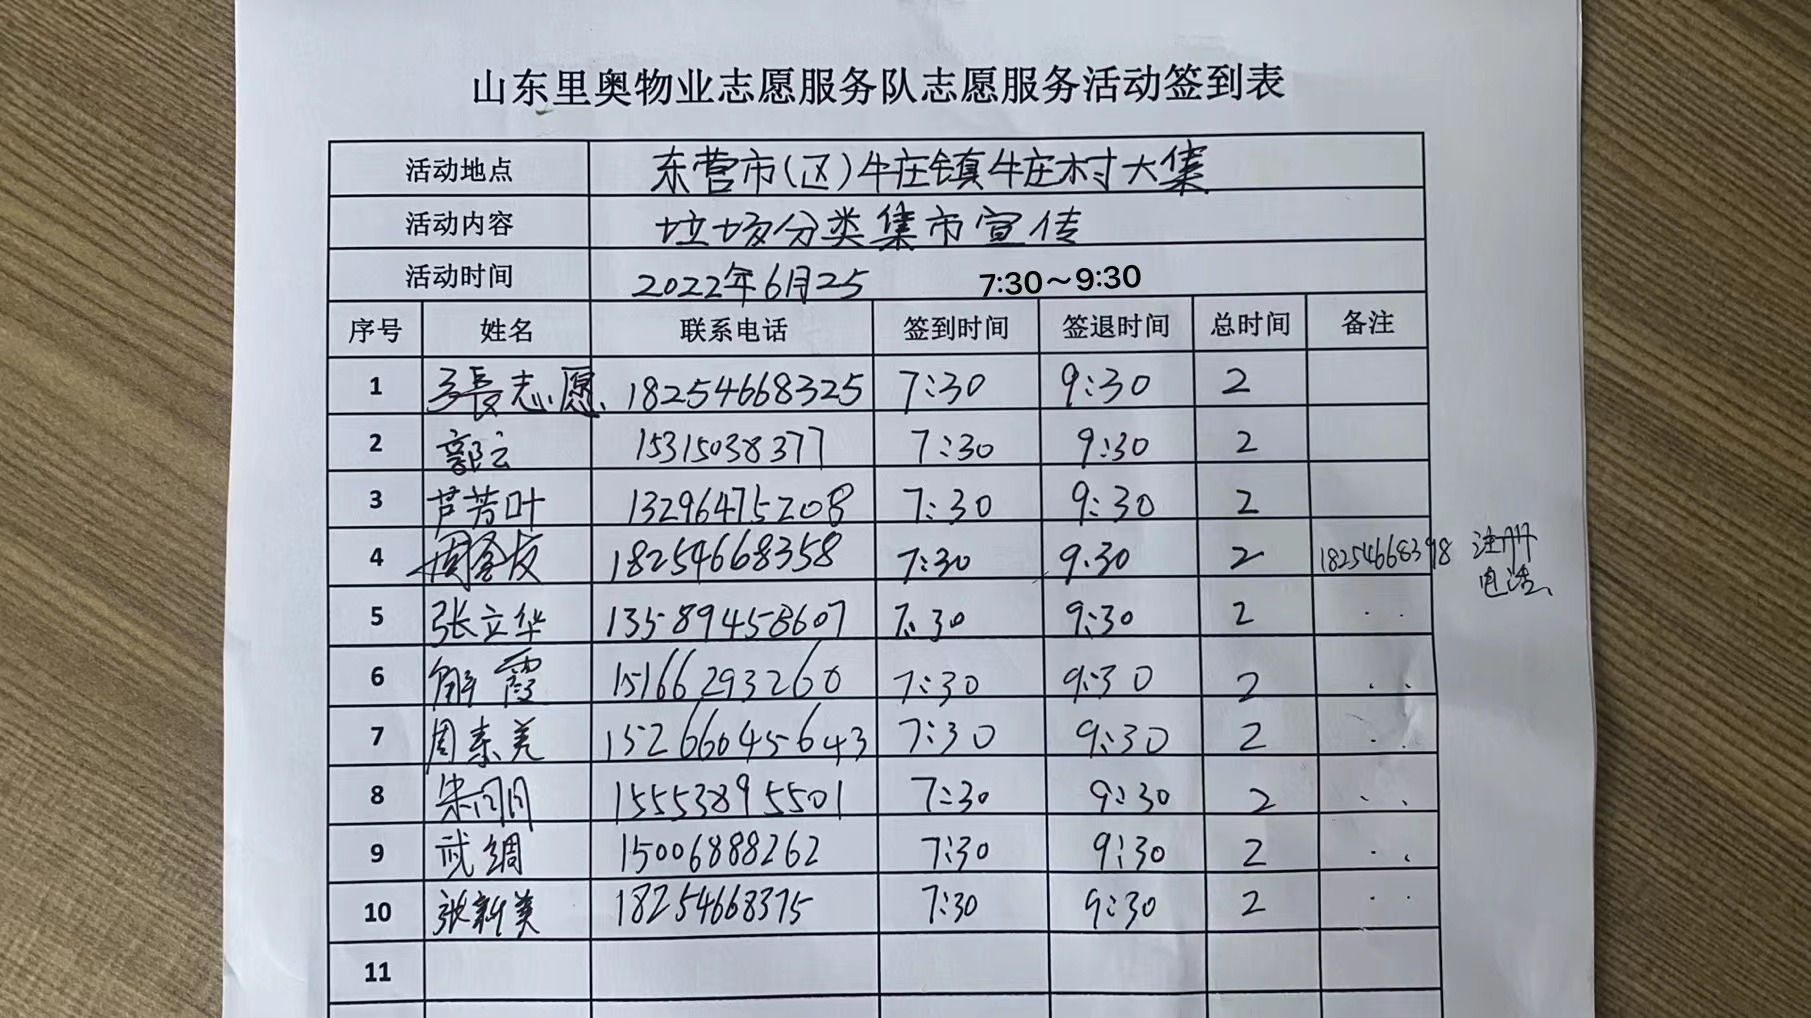 山东里奥物业志愿服务队志愿服务活动签到表
活动地点 东营市(区)牛庄镇牛庄村大集
活动内容 垃圾分类集市宣传
活动时间 2022年6月25 7:30～9:30
序号 姓名 联系电话 签到时间 签退时间 总时间 备注
1 張志愿 18254668325 7:30 9:30 2
2 郭云 15315038377 7:30 9:30 2
3 芦芳叶 13296475208 7:30 9:30 2
4 周金友 18254668358 7:30 9:30 2 18254668398 注册
电话
5 张立华 13589458607 7:30 9:30 2 ..
6 解霞 15166293260 7:30 9:30 2 ..
7 周素美 152666045643 7:30 9:30 2 ..
8 朱 15553895501 7:30 9:30 2 ..
9 武绸 15006888262 7:30 9:30 2 ..
10 张新美 18254668375 7:30 9:30 2 ..
11